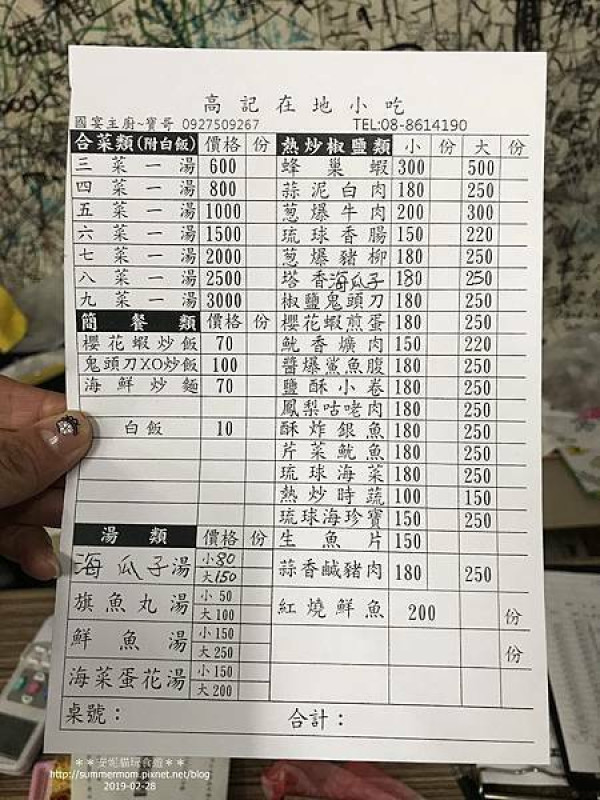 高記在地小吃
國宴主廚~寶哥 0927509267 TEL:08-8614190
合菜類(附白飯) 價格 份
三菜一湯 600
四菜一湯 800
五菜一湯 1000
六菜一湯 1500
七菜一湯 2000
八菜一湯 2500
九菜一湯 3000
簡餐類 價格 份
櫻花蝦炒飯 70
鬼頭刀XO炒飯 100
海鮮炒麵 70
白飯 10
湯類 價格 份
海瓜子湯 小80 大150
旗魚丸湯 小50 大100
鮮魚湯 小150 大250
海菜蛋花湯 小150 大200
熱炒椒鹽類 小 份 大 份
蜂巢蝦 300 500
蒜泥白肉 180 250
蔥爆牛肉 200 300
琉球香腸 150 220
蔥爆豬柳 180 250
塔香海瓜子 180 250
椒鹽鬼頭刀 180 250
櫻花蝦煎蛋 180 250
魷香爌肉 150 220
醬爆鯊魚腹 180 250
鹽酥小卷 180 250
鳳梨咕咾肉 180 250
酥炸銀魚 180 250
芹菜魷魚 180 250
琉球海菜 180 250
熱炒時蔬 100 150
琉球海珍寶 150 250
生魚片 150
蒜香鹹豬肉 180 250
紅燒鮮魚 200 份
份
桌號： 合計：
＊＊安妮貓玩食趣＊＊
http://summermom.pixnet.net/blog
2019-02-28